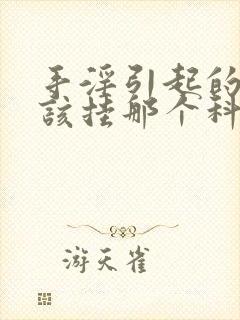 手淫引起的
該挂那个科
游天雀